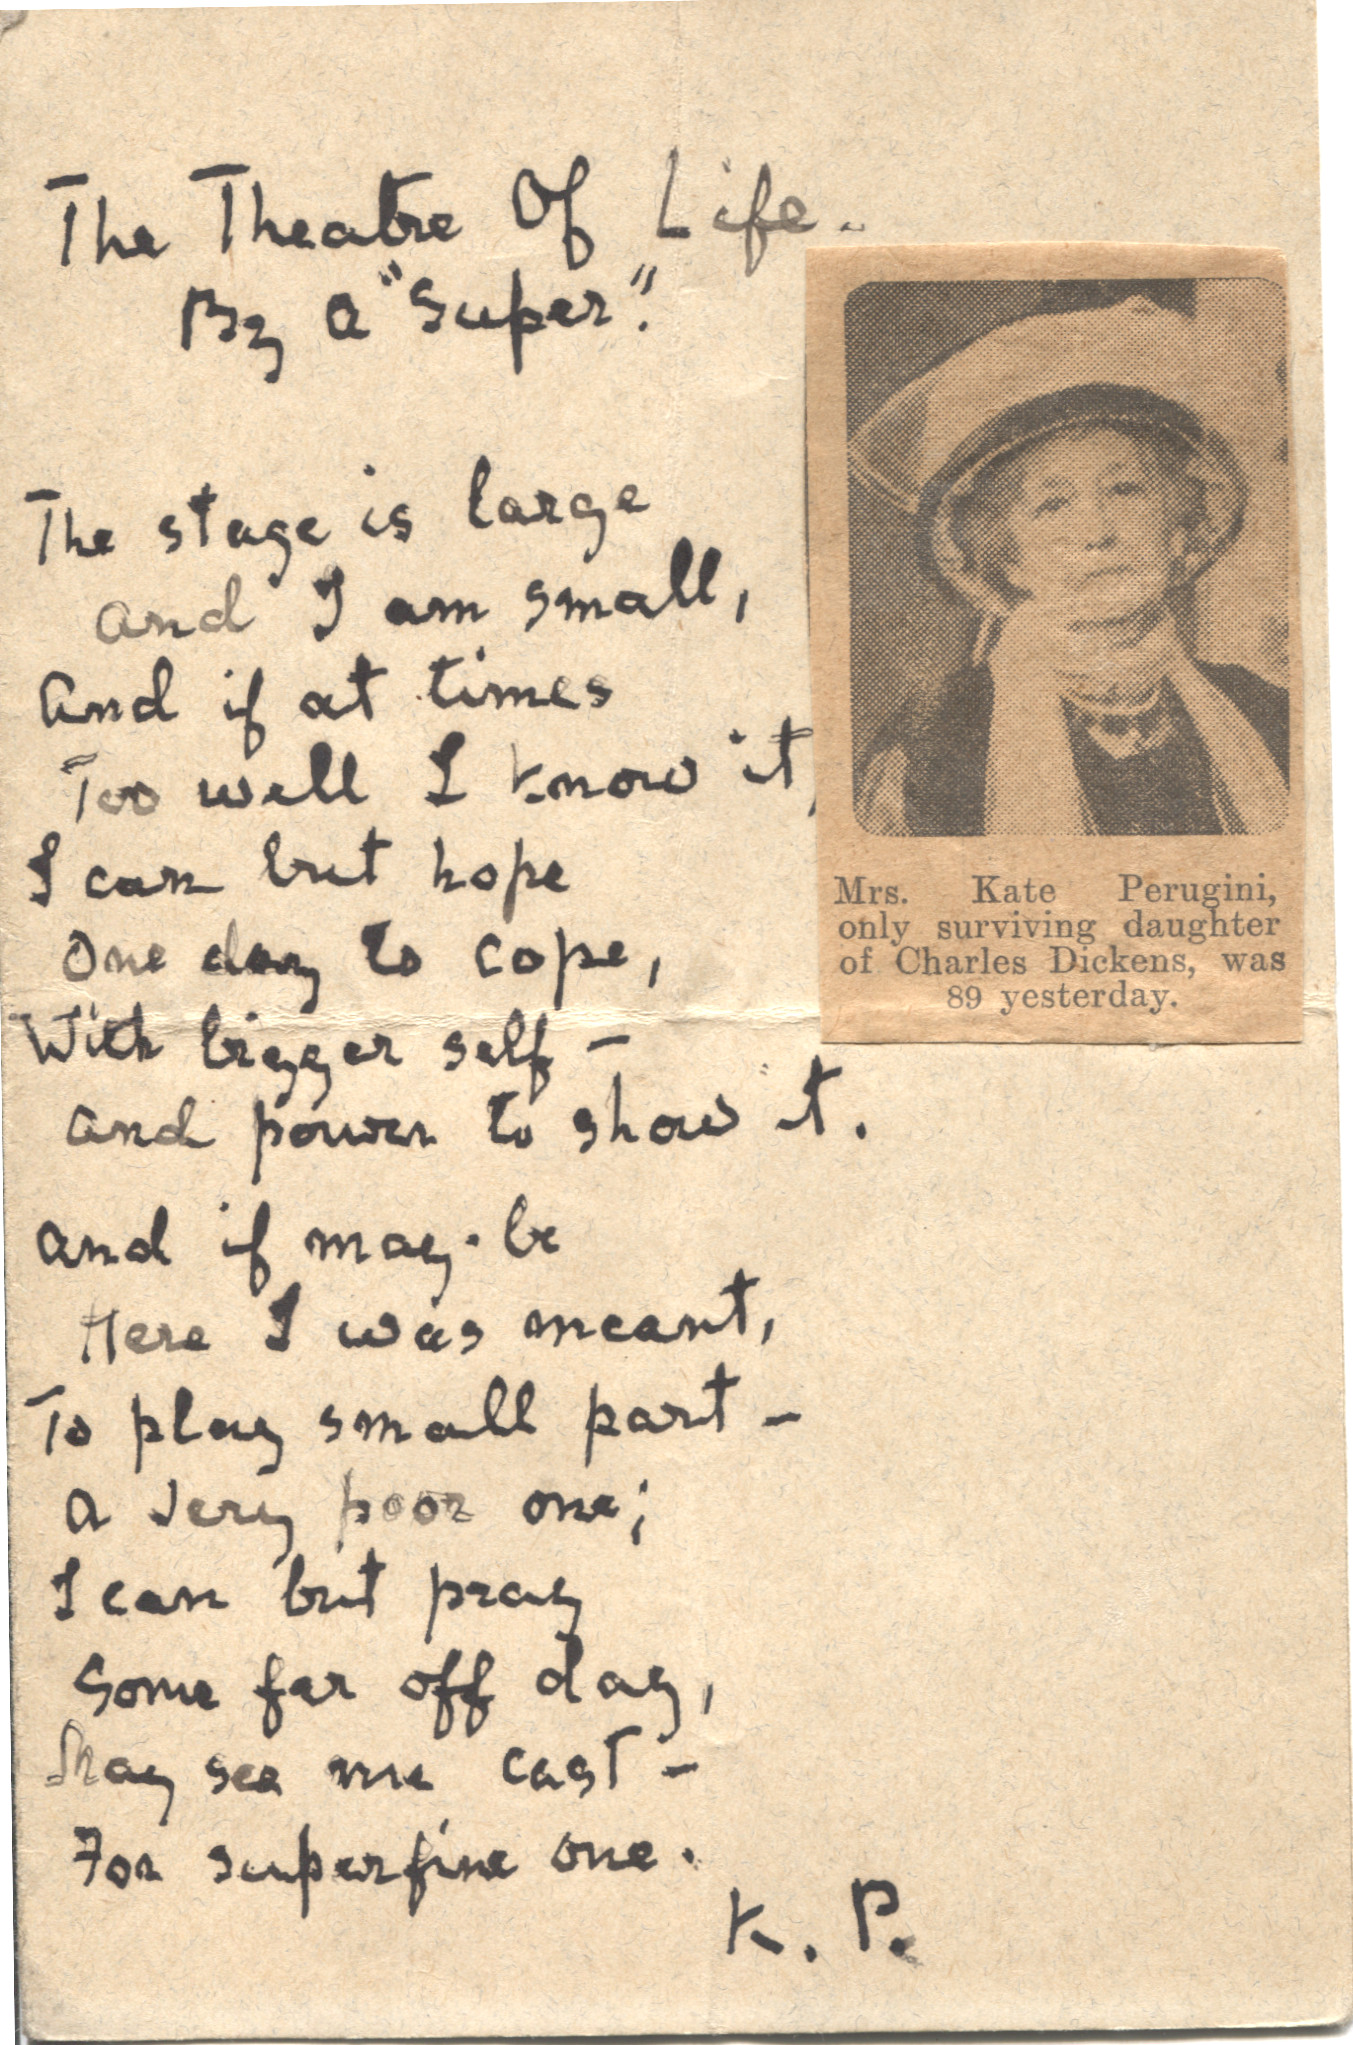 The Theatre Of Life.
By a "Super".
The stage is large
and I am small,
And if at times
Too well I know it,
I can but hope
One day to cope,
With bigger self –
and power to show it.
And if may-be
Here I was meant,
To play small part –
a very poor one;
I can but pray
Some far off day,
May see me cast –
For superfine one.
K. P.
Mrs. Kate Perugini,
only surviving daughter
of Charles Dickens, was
89 yesterday.